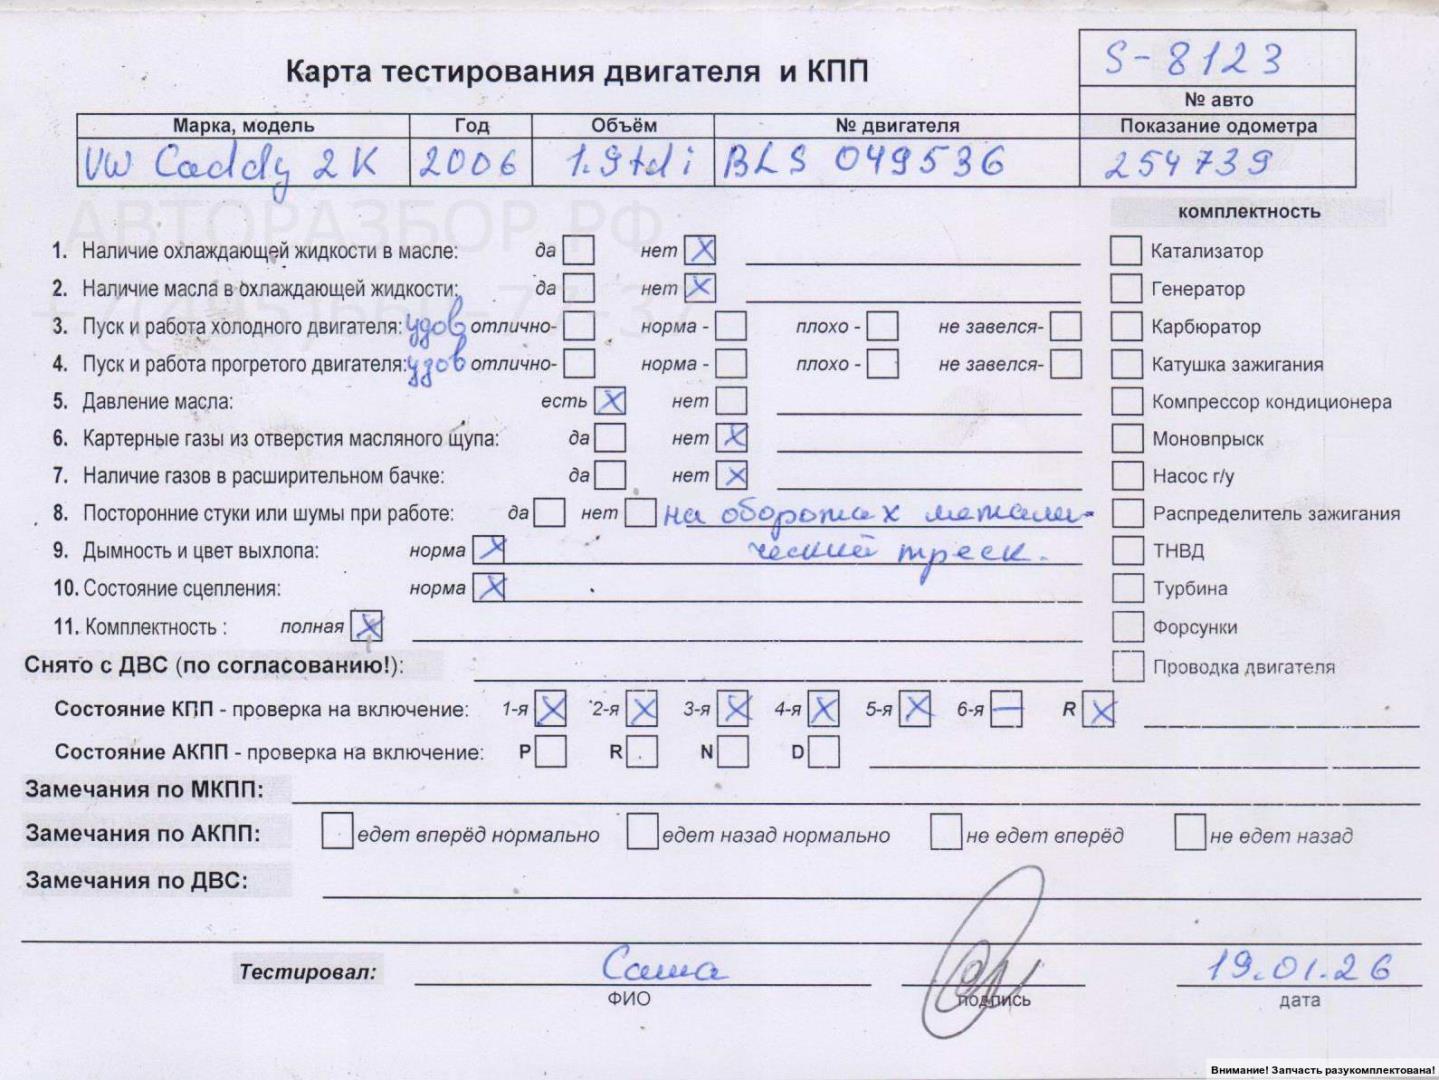 S-8123
Карта тестирования двигателя и КПП
№ авто
Марка, модель Год Объём № двигателя Показание одометра
VW Caddy 2K 2006 1.9tdi BLS 049536 254739
АВТОРАЗБОР.РФ
комплектность
1. Наличие охлаждающей жидкости в масле: да нет X Катализатор
2. Наличие масла в охлаждающей жидкости: да нет X Генератор
3. Пуск и работа холодного двигателя: удов отлично- норма - плохо - не завелся- Карбюратор
4. Пуск и работа прогретого двигателя: удов отлично- норма - плохо - не завелся- Катушка зажигания
5. Давление масла: есть X нет Компрессор кондиционера
6. Картерные газы из отверстия масляного щупа: да нет X Моновпрыск
7. Наличие газов в расширительном бачке: да нет X Насос г/у
8. Посторонние стуки или шумы при работе: да нет на оборотах металли- Распределитель зажигания
9. Дымность и цвет выхлопа: норма X ческий треск. ТНВД
10. Состояние сцепления: норма X Турбина
11. Комплектность : полная X Форсунки
Снято с ДВС (по согласованию!): Проводка двигателя
Состояние КПП - проверка на включение: 1-я X 2-я X 3-я X 4-я X 5-я X 6-я — R X
Состояние АКПП - проверка на включение: P R N D
Замечания по МКПП:
Замечания по АКПП: едет вперёд нормально едет назад нормально не едет вперёд не едет назад
Замечания по ДВС:
Тестировал: Саша 19.01.26
ФИО подпись дата
Внимание! Запчасть разукомплектована!